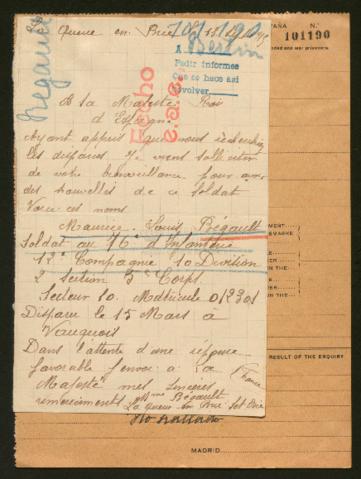 Queue en Brie
101190
Berlin
Pedir informes
Que se hace así
devolver
Regault
Hecho
A Sa Majesté Roi
d'Espagne
Ayant appris que vous recherchez
les disparus Je viens solliciter
de votre bienveillance pour avoir
des nouvelles de ce soldat
Voici ces noms
Maurice Louis Régault
Soldat au 76e d'Infanterie
12e Compagnie 10 Division
2 section 5e Corps
Secteur 10. Matricule
Disparu le 15 Mars à
Vauquois
Dans l'attente d'une réponse
favorable j'envoi à Sa
Majesté mes sincères
remerciements Mme Régault
La Queue en Brie Set Oise
France
ESPAÑA N.º
101190
MENT
IN THE
IN THE
RESULT OF THE ENQUIRY
MADRID